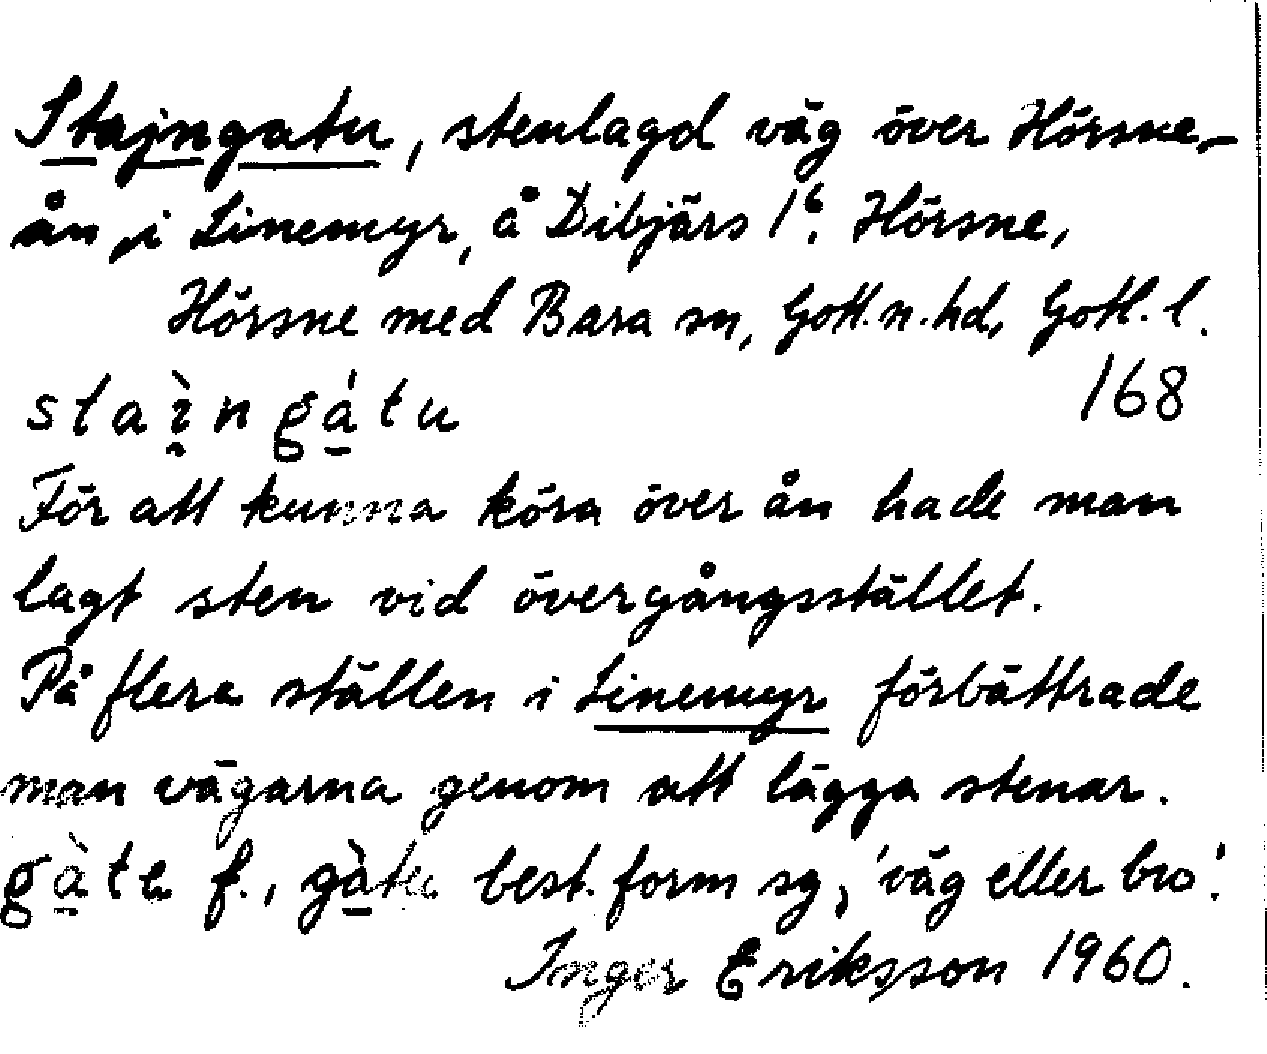 Stajngatu, stenlagd väg över Hörsne-
ån, i Linemyr, å Dibjärs 1⁶. Hörsne,
Hörsne med Bara sn, Gotl. n. hd, Gotl. l.
staì̯ngá̱tu 168
För att kunna köra över ån hade man
lagt sten vid övergångsstället.
På flera ställen i Linemyr förbättrade
man vägarna genom att lägga stenar.
gà̱te f., gà̱tu best. form sg, 'väg eller bro'.
Inger Eriksson 1960.